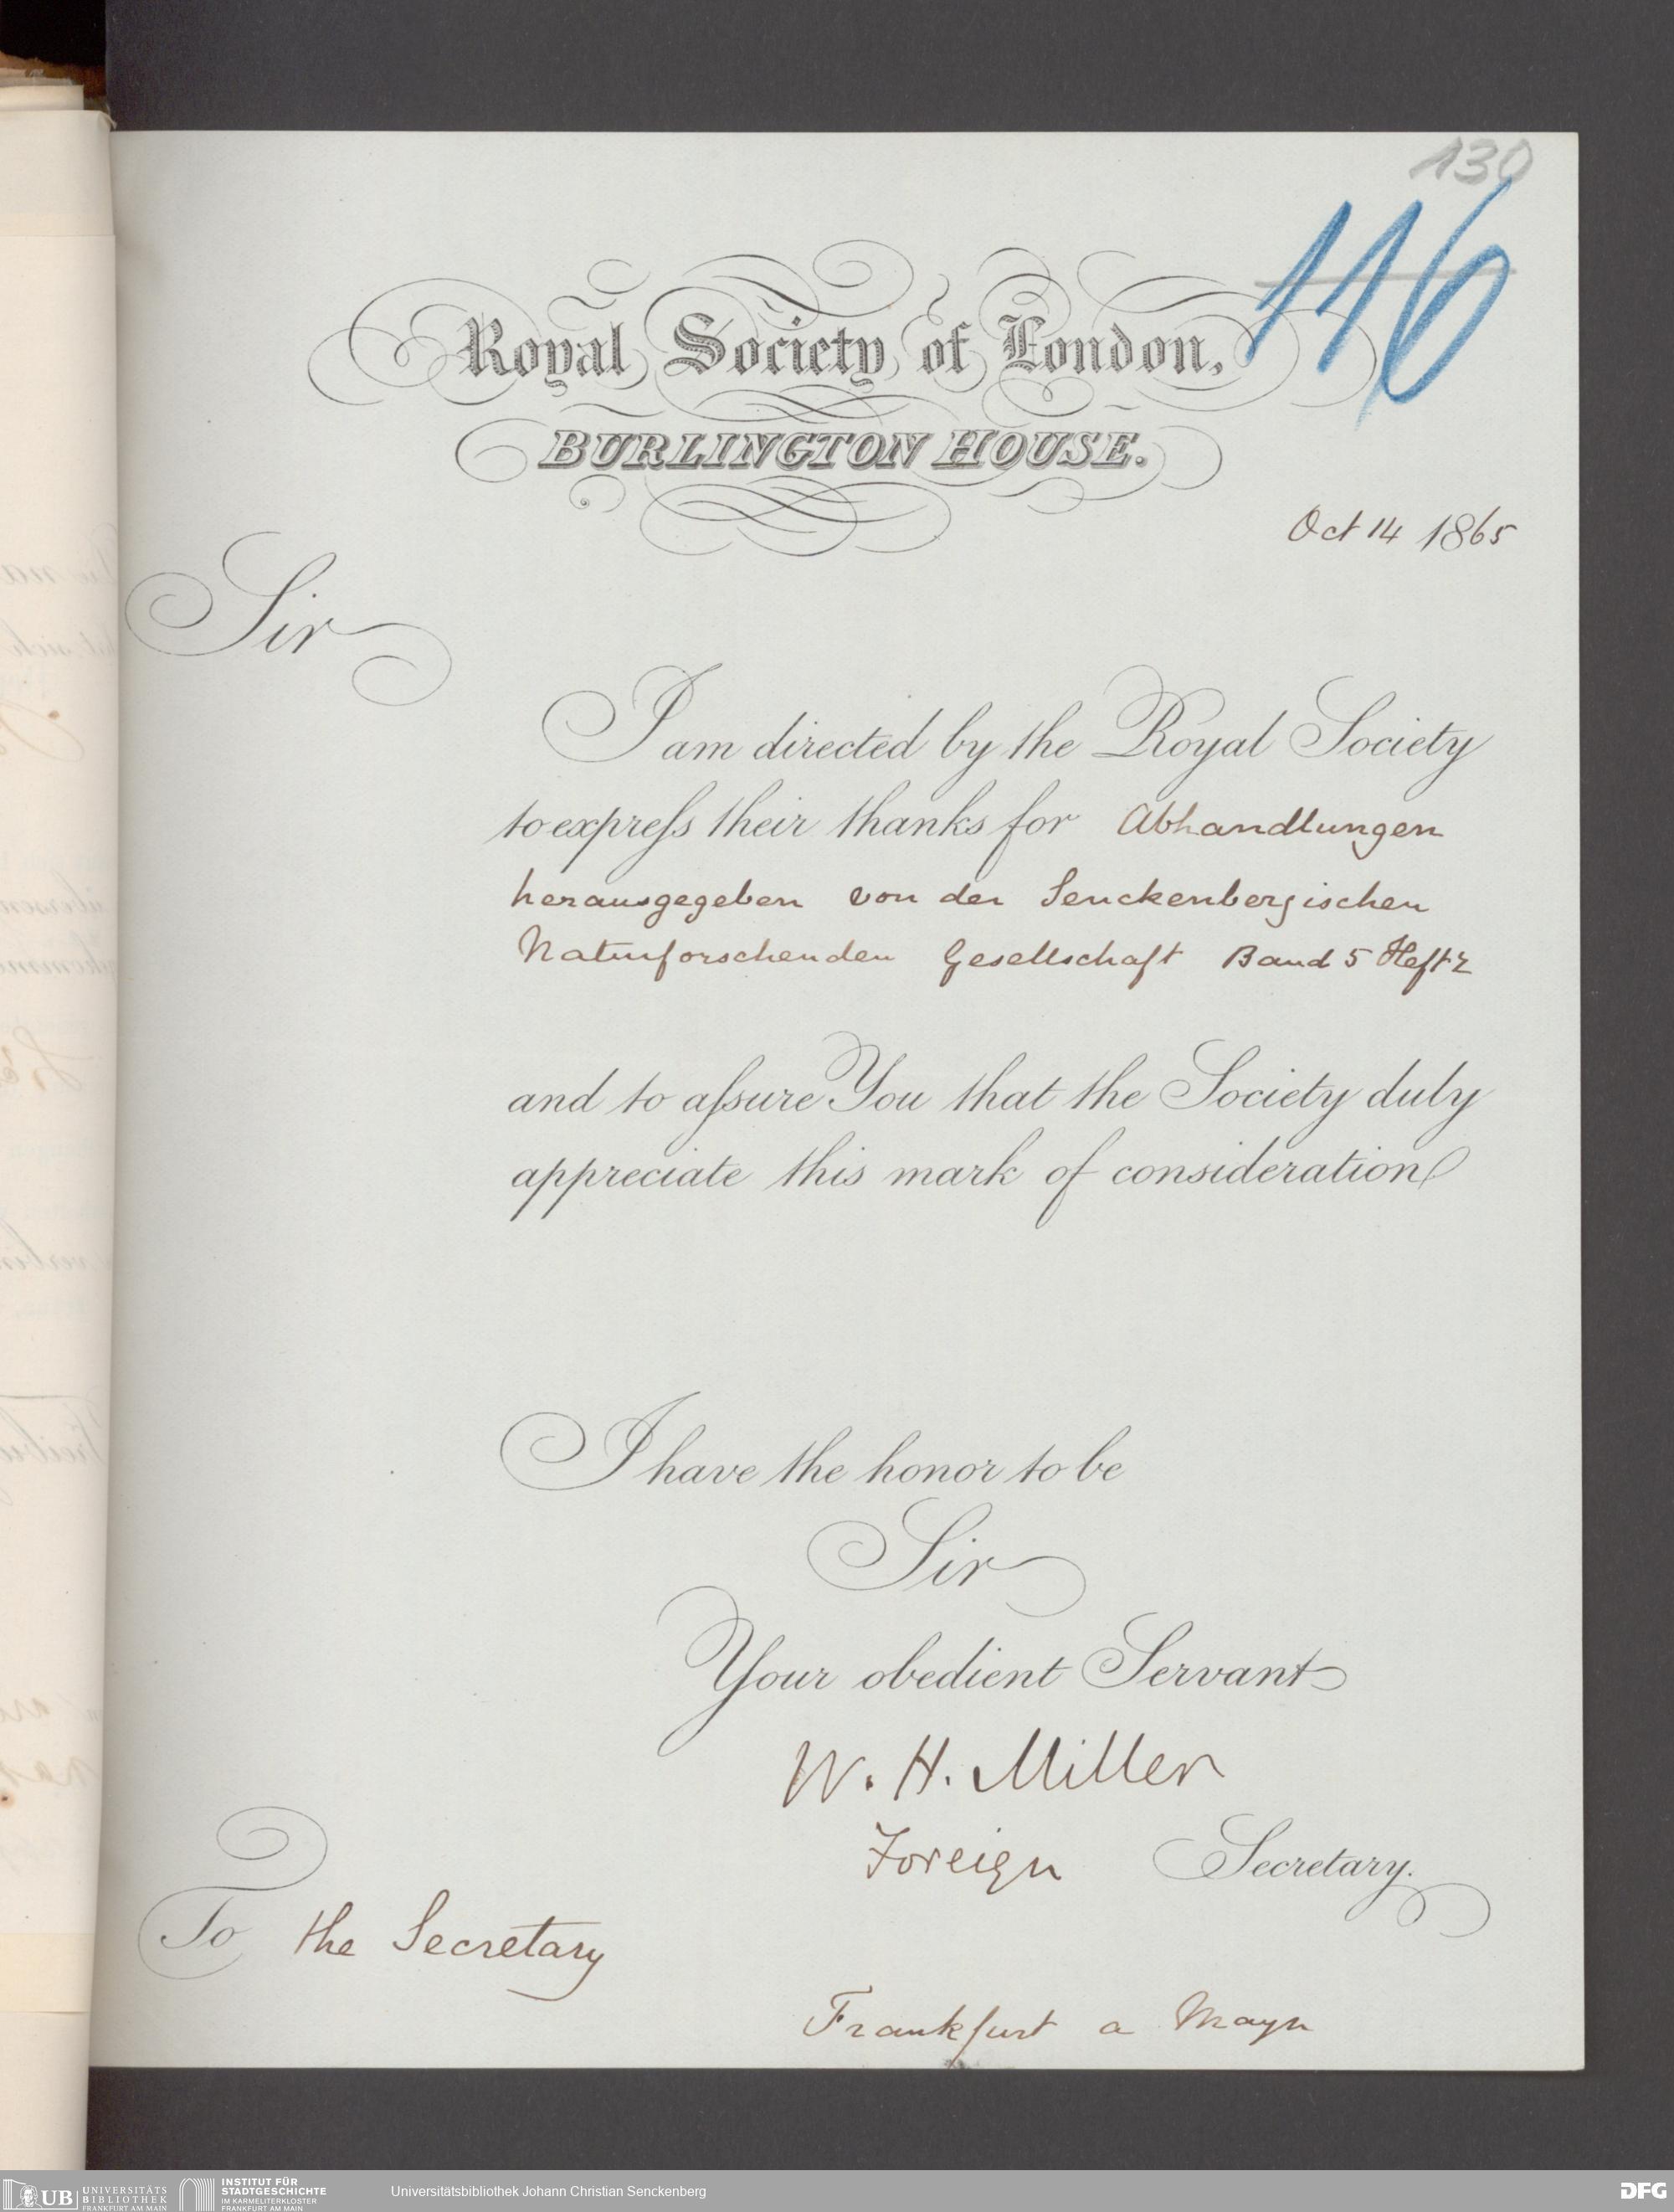 130
116
Royal Society of London,
BURLINGTON HOUSE.
Oct 14 1865
Sir
I am directed by the Royal Society
to expreſs their thanks for Abhandlungen
herausgegeben von der Senckenbergischen
Naturforschenden Gesellschaft Band 5 Heft 2
and to aſsure You that the Society duly
appreciate this mark of consideration
I have the honor to be
Sir
Your obedient Servant
W. H. Miller
Foreign Secretary.
To the Secretary
Frankfurt a Mayn
UB UNIVERSITÄTS
BIBLIOTHEK
FRANKFURT AM MAIN
INSTITUT FÜR
STADTGESCHICHTE
IM KARMELITERKLOSTER
FRANKFURT AM MAIN
Universitätsbibliothek Johann Christian Senckenberg
DFG